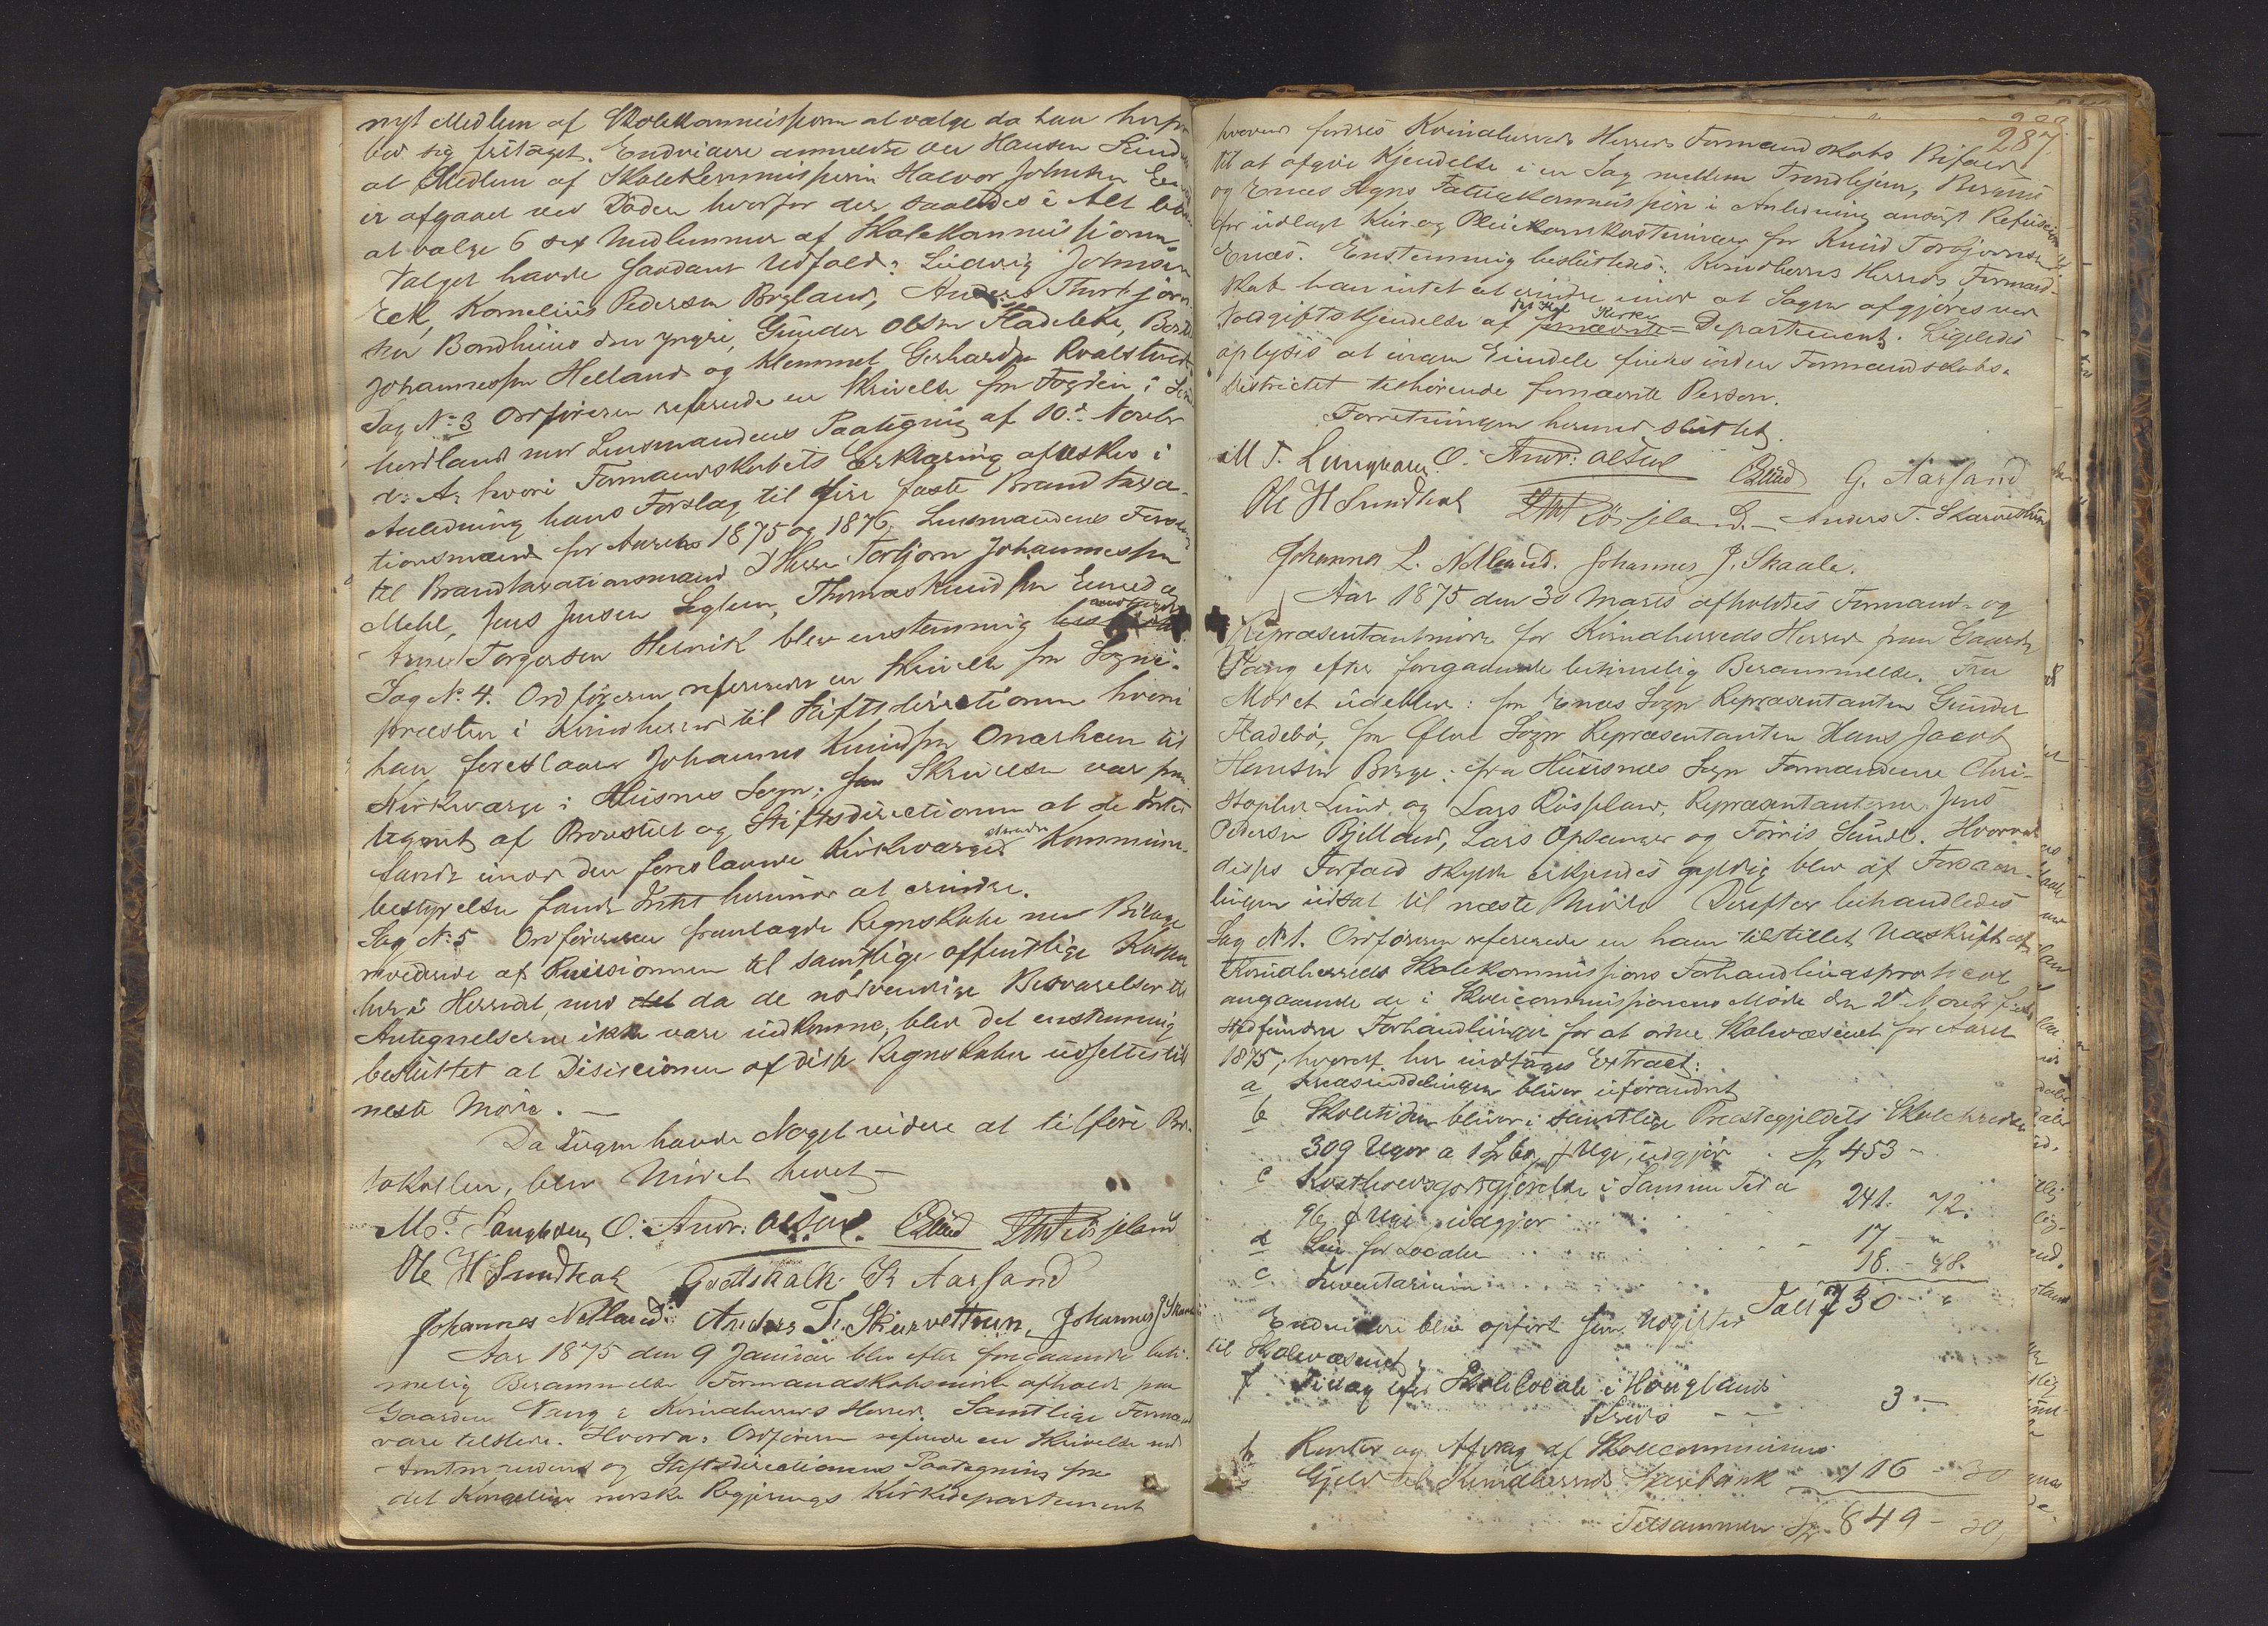 nyt Medlem af Skolekommissionen at vælge da han herfra
bad sig fritaget. Endvidere anmeldte Ole Hansen Sund
at Medlem af Skolekommissionen Halvor Johnsen
er afgaaet ved Døden hvorfor der saaledes i Alt blev
at vælge 6 sex Medlemmer af Skolekommissionen.
Valget havde saadant Udfald: Ludvig Johnsen
Eek, Kornelius Pedersen Bogland, Anders Thorbjørn-
sen Bondhuus den yngre, Gunder Olsen Fladebø,
Johannessen Helland og Klemmet Gerhardsen Roaldstveit
Sag No 3 Ordføreren refererede en Skrivelse fra Fogden i Sønd
hordland med Lensmandens Paategning af 10de Novbr
d: A: hvori Formandskabets Erklæring afæskes i
Anledning hans Forslag til fire faste Brandtaxa-
tionsmænd for Aarene 1875 og 1876. Lensmandens Forslag
til Brandtaxationsmænd D'Herrer Torbjørn Johannessen
Mehl, Jens Jensen Seglem, Thomas Knudsen
Arne Torgersen Hesvik blev enstemmig
Sag No 4. Ordføreren refererede en Skrivelse fra Sogne-
præsten i Kvindherred til Stiftsdirectionen hvori
han foreslaaer Johannes Knudsen Onarheim til
Kirkeværge i Huusnes Sogn; Skrivelsen var paa
tegnet af Provstiet og Stiftsdirectionen at de Intet
fandt imod den foreslaaede Kirkeværge Kommune-
bestyrelsen fandt Intet herimod at erindre.
Sag No 5 Ordføreren fremlagde Regnskabe med Bilage
reviderede af Revisionen til samtlige offentlige Kasser
her i Herredet, med det da de nødvendige Besvarelser til
Antegnelserne ikke vare indkomne, blev det enstemmig
besluttet at Decisionen af disse Regnskaber udsettes til
neste Møde. –
Da Ingen havde Noget videre at tilføre Pro-
tokollen, blev Mødet hævet –
M. T. Lungreen O. Andr: Olsen. CLund LHRøsseland
Ole H Sundkal Gudtskalk K Aarsand
Johannes Netland. Anders T. Skarvettun, Johannes J Skaale
Aar 1875 den 9 Januar blev efter foregaaende beti-
melig Berammelse Formandskabsmøde afholdt paa
Gaarden Vang i Kvindherreds Herred. Samtlige Formænd
vare tilstede. Hvorda: Ordføreren refererede en Skrivelse med
Amtmandens og Stiftsdirectionens Paategning fra
det Kongelige norske Regjerings Kirkedepartement
287
hvorved fordres Kvindherreds Herreds Formandskabs Bifald
til at afgive Kjendelse i en Sag mellem Trondhjems, Bergens
og Enæs Sogns Fattigkommission i Anledning ansøgt Refusion
for udlagt Kur og Pleieomkostninger for Knud Torbjørnsen
Enæs. Enstemmig besluttedes: Kvindherreds Herreds Formand-
skab har intet at erindre imod at Sagen afgjøres ved
Voldgiftskjendelse af fornævnte Kirke Departement. Ligeledes
oplystes at ingen Eiendele findes inden Formandskabs-
districtet tilhørende fornævnte Person.
Forretningen hermed sluttet.
M T. Lungreen O. Andr: Olsen CLund G. Aarsand
Ole H Sundkal LHRøsseland – Anders T. Skarvettun
Johannes L. Netland. Johannes J. Skaale.
Aar 1875 den 30 Marts afholdtes Formand- og
Repræsentantmøde for Kvindherreds Herred paa Gaarden
Vang efter foregaaende betimelig Berammelse. Fra
Mødet udebleve: fra Enæs Sogn Repræsentanten Gunder
Fladebø, fra Ølve Sogn Repræsentanten Hans Jacob
Hansen Berge: fra Huusnæs Sogn Formændene Chri-
stopher Lund og Lars Røsseland, Repræsentanterne Jens
Pedersen Bjelland, Lars Opsanger og Tørris Sunde. Hvorvidt
disses Forfald skulde erkjendes gyldig blev af Forsam-
lingen udsat til næste Møde Derefter behandledes
Sag No 1. Ordføreren refererede en ham tilstillet Udskrift af
Kvindherreds Skolekommissions Forhandlingsprotocol
angaaende de i Skolecommissionens Møde den 2den Novbr
stedfundne Forhandlinger for at ordne Skolevæsenet for Aaret
1875, hvoraf her indtages Extract:
a Kredsinddelingen bliver uforandret
b Skoletiden bliver i samtlige Præstegjeldets Skolekredse
309 Uger a 1 Sp pr Uge, udgjør . Sp 453 –
c Kostholdsgodtgjørelse i samme Tid a
96 pr Uge udgjør 241. 72.
d Leie for Locale 17 – "
e Inventarium 18. – 48.
Tall 730 – "
Endvidere blev opført som Udgifter
til Skolevæsenet:
f Tillæg Leie Skolelocale i Høuglands
Kreds – – 3 –
h Renter og Afdrag af Skolecommunens
Gjeld til Kvindherreds Sparebank 116 30
Tilsammen Sp. 849 – 30,